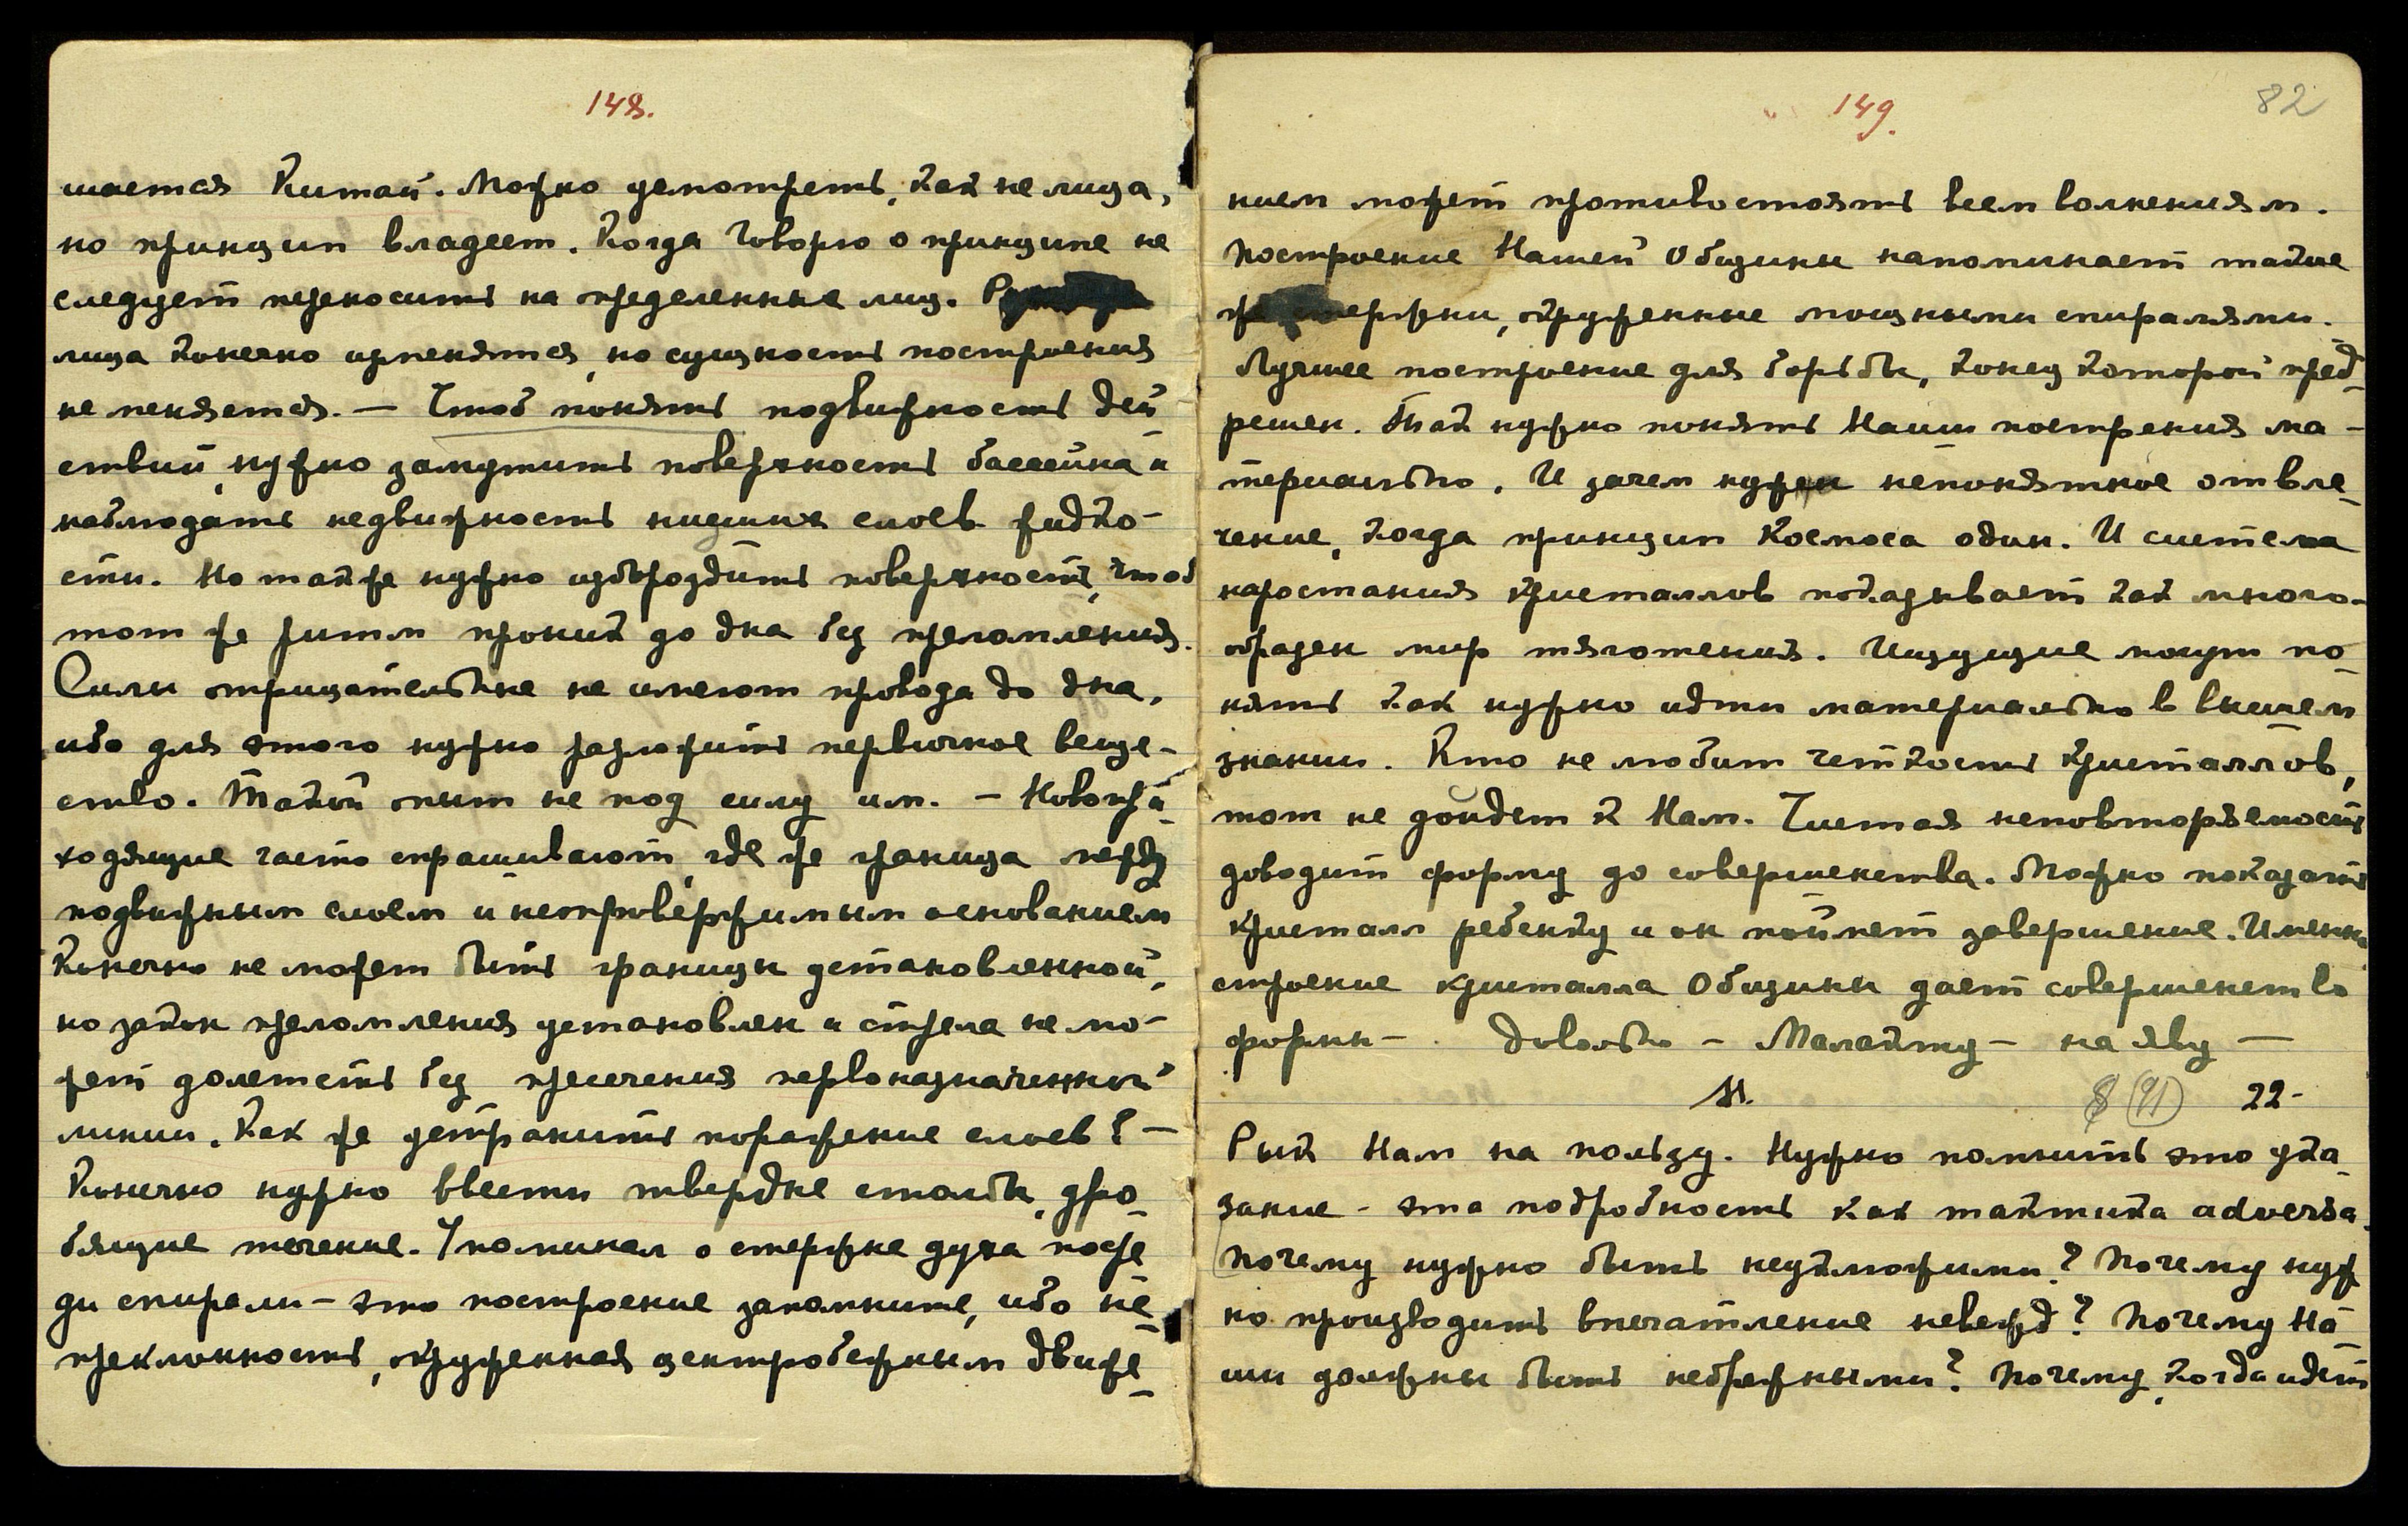 148.
шается Китай. Можно усмотреть, как не лица,
но принцип владеет. Когда Говорю о принципе не
следует переносить на определенные лиц.
лица конечно изменятся, но сущность построения
не меняется. — Чтоб понять подвижность дей-
ствий, нужно замутить поверхность бассейна и
наблюдать недвижность нисших слоев жидко-
сти. Но также нужно избороздить поверхность, чтоб
тот же ритм проник до дна без преломления.
Силы отрицательные не имеют провода до дна,
ибо для этого нужно разложить первичное веще-
ство. Такой опыт не под силу им. — Новопри-
ходящие часто спрашивают, где же граница между
подвижным слоем и неопровержимым основанием
Конечно не может быть границы установленной,
но закон преломления установлен и стрела не мо-
жет долететь без пресечения первоназначенной
линии. Как же устранить поражение слоев? —
Конечно нужно ввести твердые столбы, дро-
бящие течение. Упоминал о стержне духа посре-
ди спирали – это построение запомните, ибо не-
преклонность, окруженная центробежным движе-
149.
82
нием может противостоять всем волнениям.
Построение Нашей Общины напоминает такие
стержни, окруженные мощными спиралями.
Лучшее построение для борьбы, конец которой пред-
решен. Так нужно понять Наши построения ма-
териально. И зачем нужен непонятное отвле-
чение, когда принцип Космоса один. И система
наростания кристаллов показывает как много-
образен мир тяготения. Ищущие могут по-
нять как нужно идти материально в высшем
знании. Кто не любит четкость кристаллов,
тот не дойдет к Нам. Чистая неповторяемость
доводит форму до совершенства. Можно показать
кристалл ребенку и он поймет завершение. Именно
строение кристалла Общины дает совершенство
формы – довольно – Малайту – на яву —
8 (91) 22-
Рык Нам на пользу. Нужно помнить это ука-
зание – эта подробность как тактика adversa.
Почему нужно быть неуклюжими? Почему нуж-
но производить впечатление невежд? Почему На-
ши должны быть небрежными? Почему, когда идет